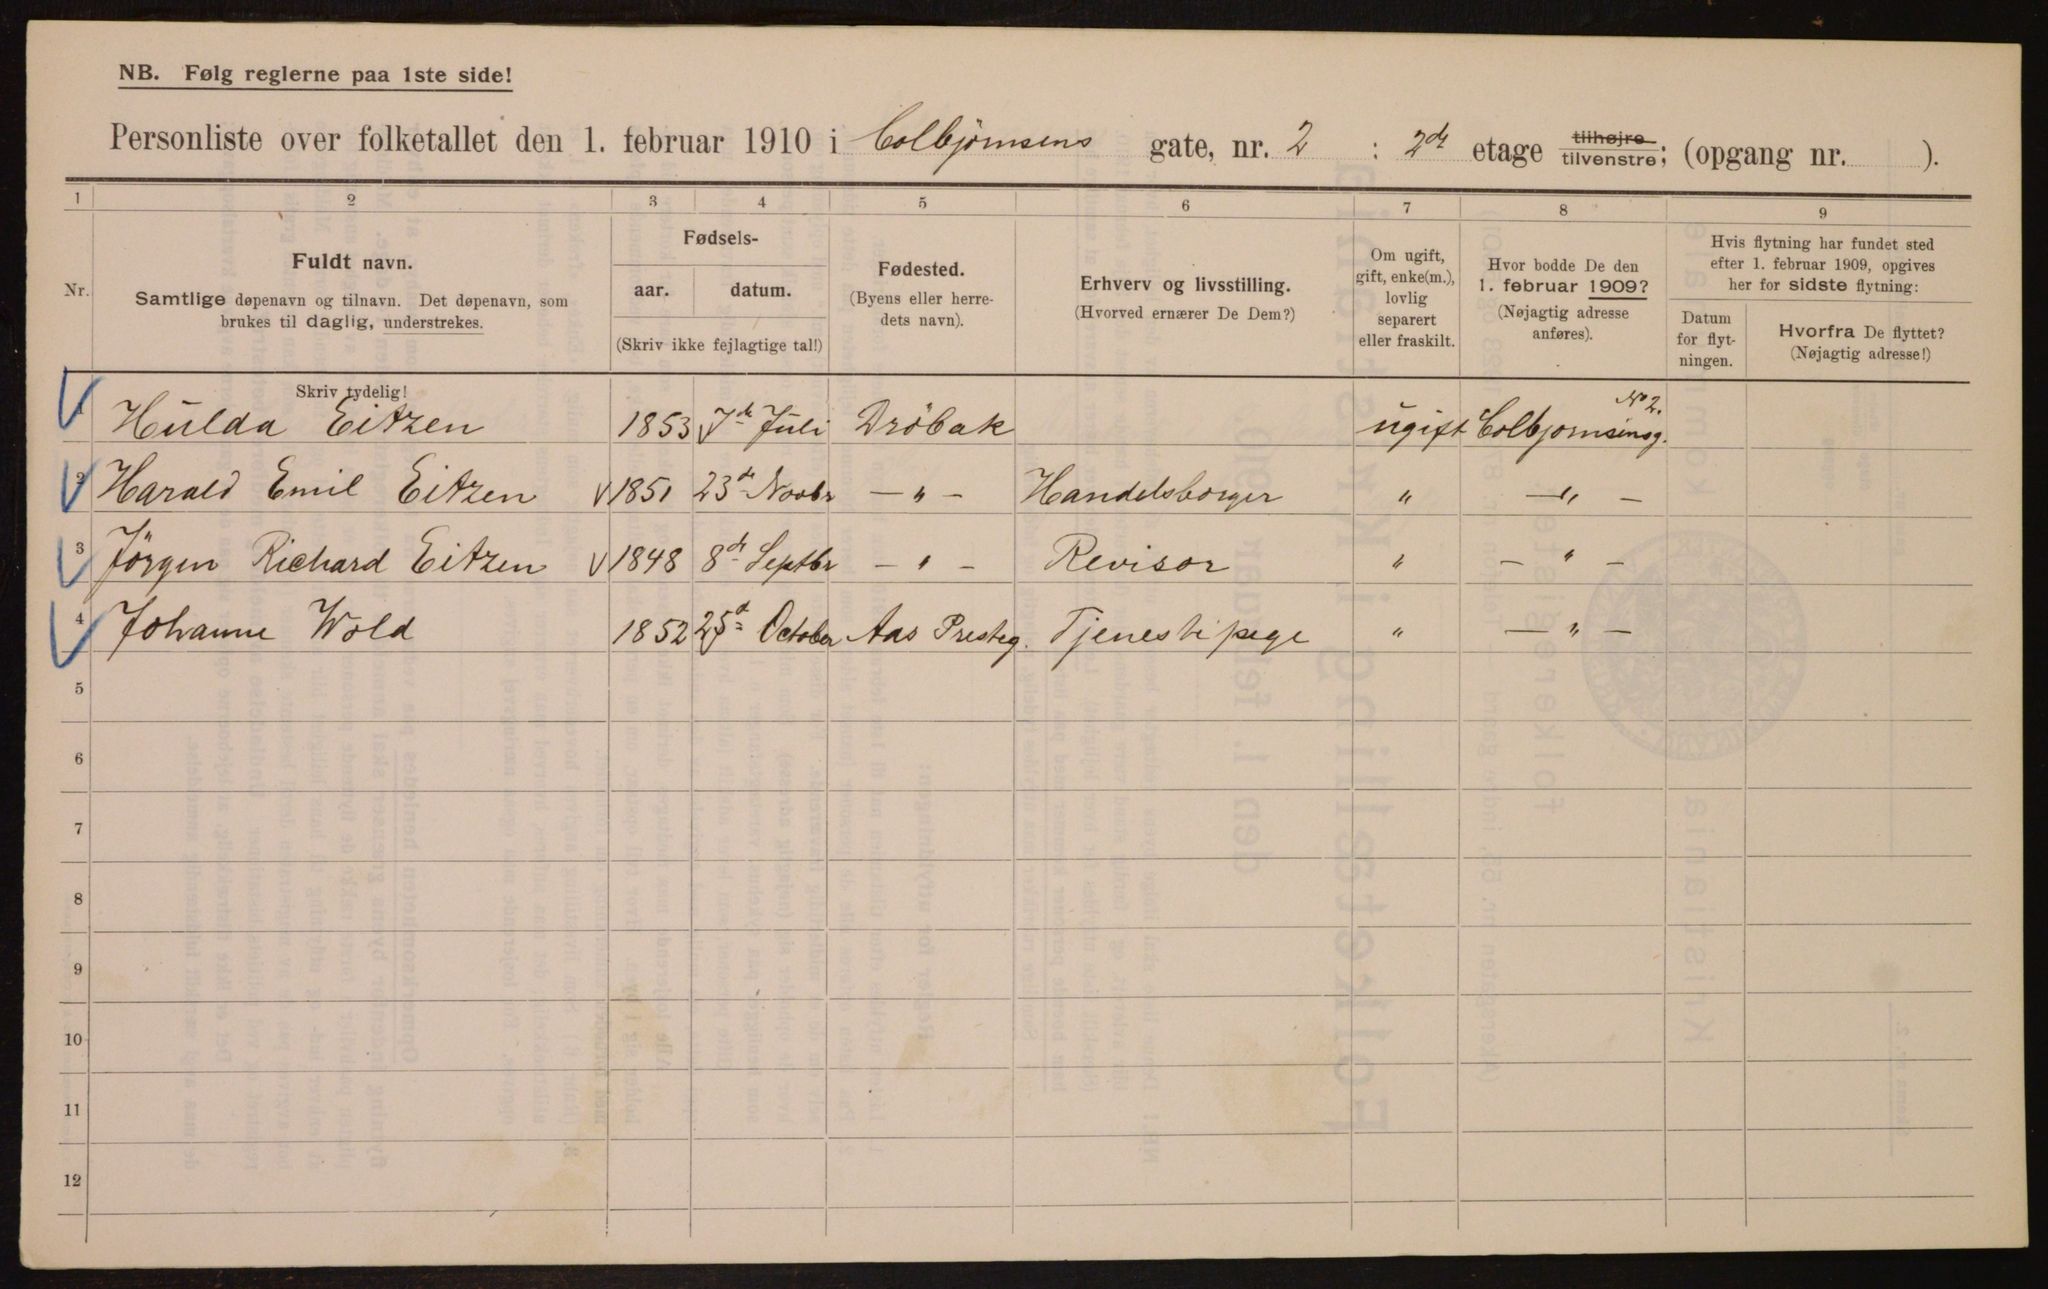 NB. Følg reglerne paa 1ste side!
Personliste over folketallet den 1. februar 1910 i Colbjørnsens gate, nr. 2 : 2den etage tilhøjre tilvenstre; (opgang nr. ).
1 2 3 4 5 6 7 8 9
Nr.
Fuldt navn.
Samtlige døpenavn og tilnavn. Det døpenavn, som
brukes til daglig, understrekes.
Fødsels-
aar. datum.
(Skriv ikke fejlagtige tal!)
Fødested.
(Byens eller herre-
dets navn).
Erhverv og livsstilling.
(Hvorved ernærer De Dem?)
Om ugift,
gift, enke(m.),
lovlig
separert
eller fraskilt.
Hvor bodde De den
1. februar 1909?
(Nøjagtig adresse
anføres).
Hvis flytning har fundet sted
efter 1. februar 1909, opgives
her for sidste flytning:
Datum
for flyt-
ningen.
Hvorfra De flyttet?
(Nøjagtig adresse!)
Skriv tydelig!
1 Hulda Eitzen 1853 7de Juli Dröbak ugift Colbjornsensg. No 2.
2 Harald Emil Eitzen 1851 23de Novbr — " — Handelsborger " — " —
3 Jörgen Richard Eitzen 1848 8de Septbr — " — Revisor " — " —
4 Johanne Wold 1852 25d October Aas Presteg. Tjenestepige " — " —
5
6
7
8
9
10
11
12